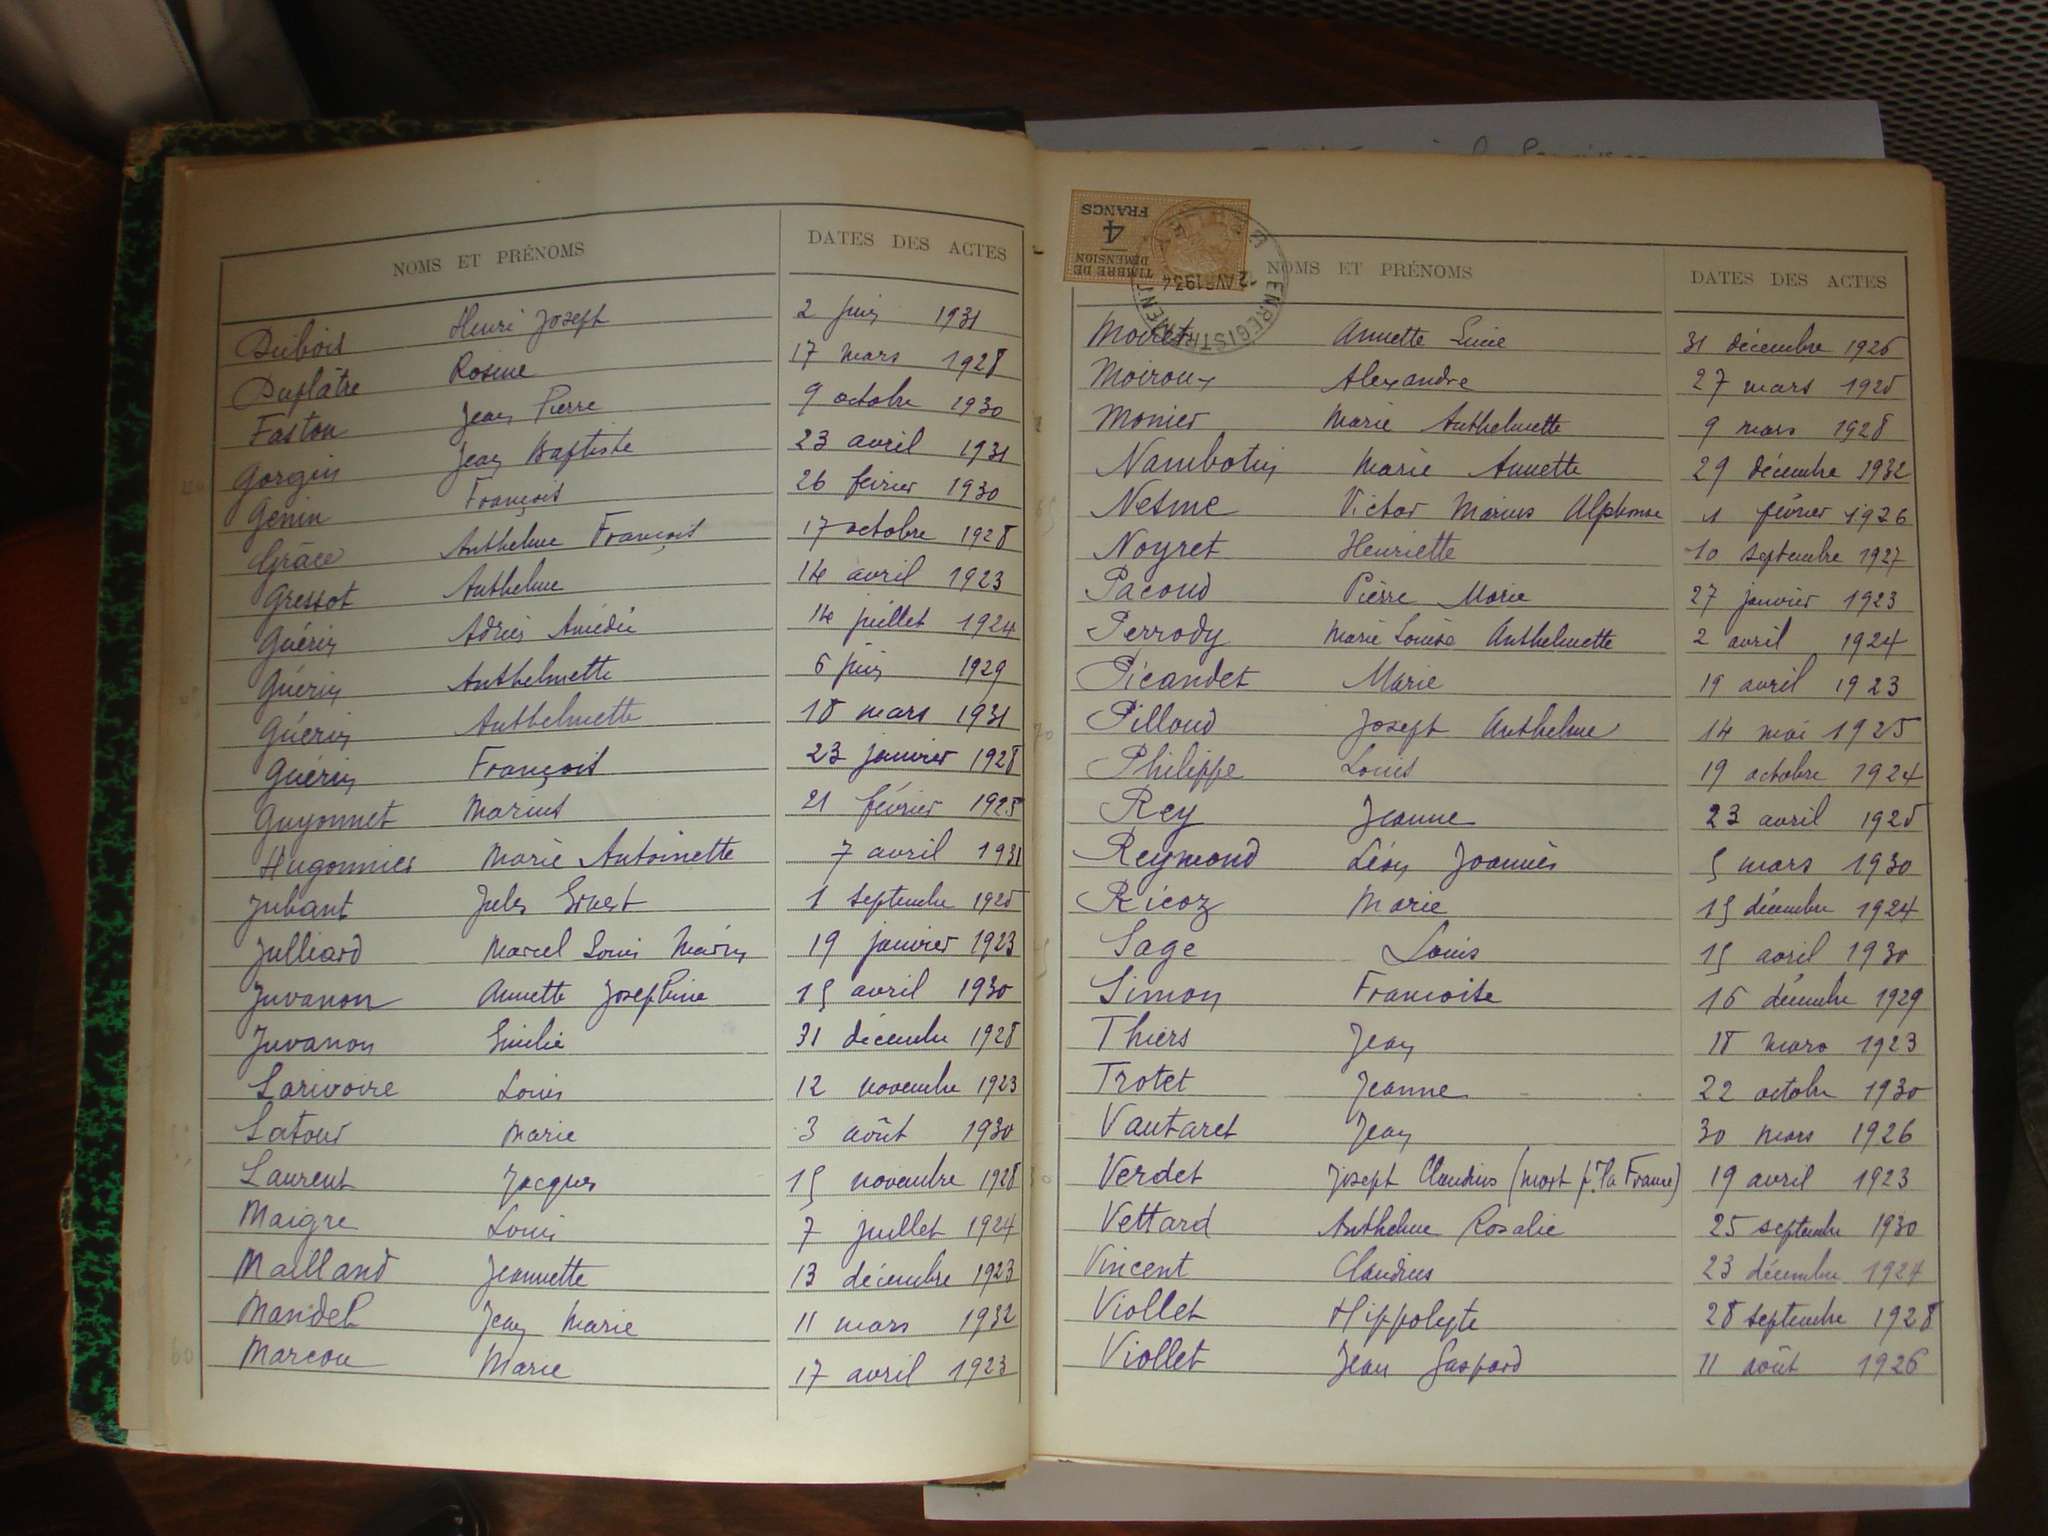 NOMS ET PRÉNOMS DATES DES ACTES
Dubois Henri Joseph 2 juin 1931
Duplâtre Rosine 17 mars 1928
Faston Jean Pierre 9 octobre 1930
Gorgin Jean Baptiste 23 avril 1931
Genin François 26 février 1930
Grâce Anthelme François 17 octobre 1928
Gressot Anthelme 14 avril 1923
Guérin Adrien Amédée 14 juillet 1924
Guérin Anthelmette 6 juin 1929
Guérin Anthelmette 18 mars 1931
Guérin François 23 janvier 1928
Guyonnet Marius 21 février 1925
Hugonnier Marie Antoinette 7 avril 1931
Jubant Jules Ernest 1 septembre 1925
Julliard Marcel Louis Marius 19 janvier 1923
Juvanon Annette Joséphine 15 avril 1930
Juvanon Emilie 31 décembre 1928
Larivoire Louis 12 novembre 1923
Latour Marie 3 août 1930
Laurent Jacques 15 novembre 1928
Maigre Louis 7 juillet 1924
Mailland Jeannette 13 décembre 1923
Mandel Jean Marie 11 mars 1932
60 Marcon Marie 17 avril 1923
4 FRANCS
TIMBRE DE DIMENSION
ENREGISTREMENT
2 AVR 1934
NOMS ET PRÉNOMS DATES DES ACTES
Moiret Annette Lucie 31 décembre 1926
Moiroux Alexandre 27 mars 1925
Monier Marie Anthelmette 9 mars 1928
Nambotin Marie Annette 29 décembre 1932
Nesme Victor Marius Alphonse 1 février 1926
Noyret Henriette 10 septembre 1927
Pacoud Pierre Marie 27 janvier 1923
Perrody Marie Louise Anthelmette 2 avril 1924
Picandet Marie 19 avril 1923
Pilloud Joseph Anthelme 14 mai 1925
Philippe Louis 19 octobre 1924
Rey Jeanne 23 avril 1925
Reymond Léon Joannès 5 mars 1930
Ricoz Marie 15 décembre 1924
Sage Louis 15 avril 1930
Simon Francoise 16 décembre 1929
Thiers Jean 18 mars 1923
Trotet Jeanne 22 octobre 1930
Vautaret Jean 30 mars 1926
Verdet Joseph Claudius (mort pr la France) 19 avril 1923
Vettard Anthelme Rosalie 25 septembre 1930
Vincent Claudius 23 décembre 1924
Viollet Hippolyte 28 septembre 1928
Viollet Jean Gaspard 11 août 1926